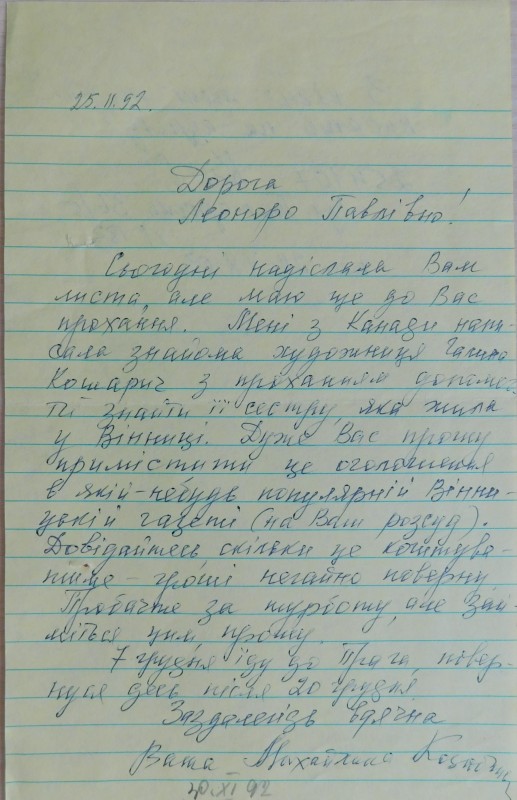 25.11.92.
Дорога
Леоноро Павлівно!
Сьогодні надіслала Вам
листа, але маю ще до Вас
прохання. Мені з Канади напи-
сала знайома художниця Галина
з проханням допомог-
ти знайти її сестру, яка жила
у Вінниці. Дуже Вас прошу
примістити це оголошення
в якій-небудь популярній Вінни-
цькій газеті (на Ваш розсуд).
Довідайтесь скільки це коштува-
тиме – гроші негайно поверну.
Пробачте за турботу, але зай-
міться цим прошу.
7 грудня їду до Праги, повер-
нуся десь після 20 грудня.
Заздалегідь вдячна
Ваша Михайлина
XI 92